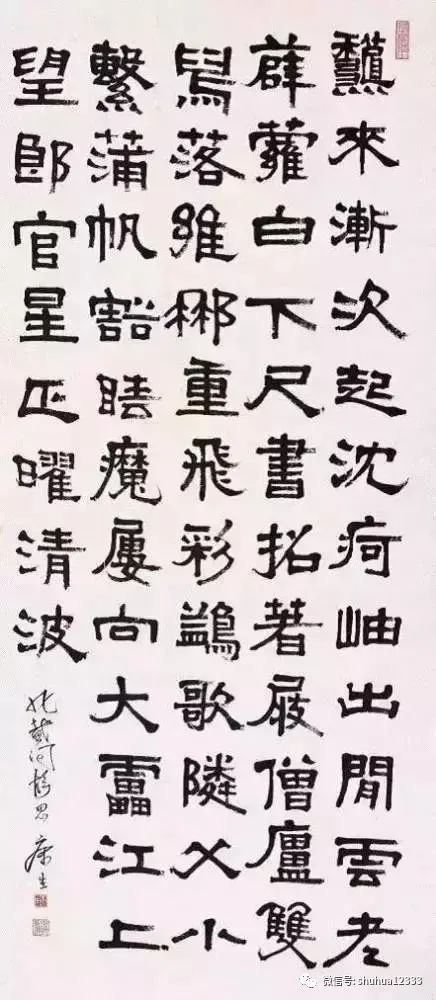 來漸次起沈疴岫出閒雲老
薜蘿白下尺書招著屐僧廬雙
舄落維那重飛彩鷁歌隣父小
繫蒲帆豁睡魔屢向大雷江上
望郎官星正曜清波
戴河 康生
微信号: shuhua12333